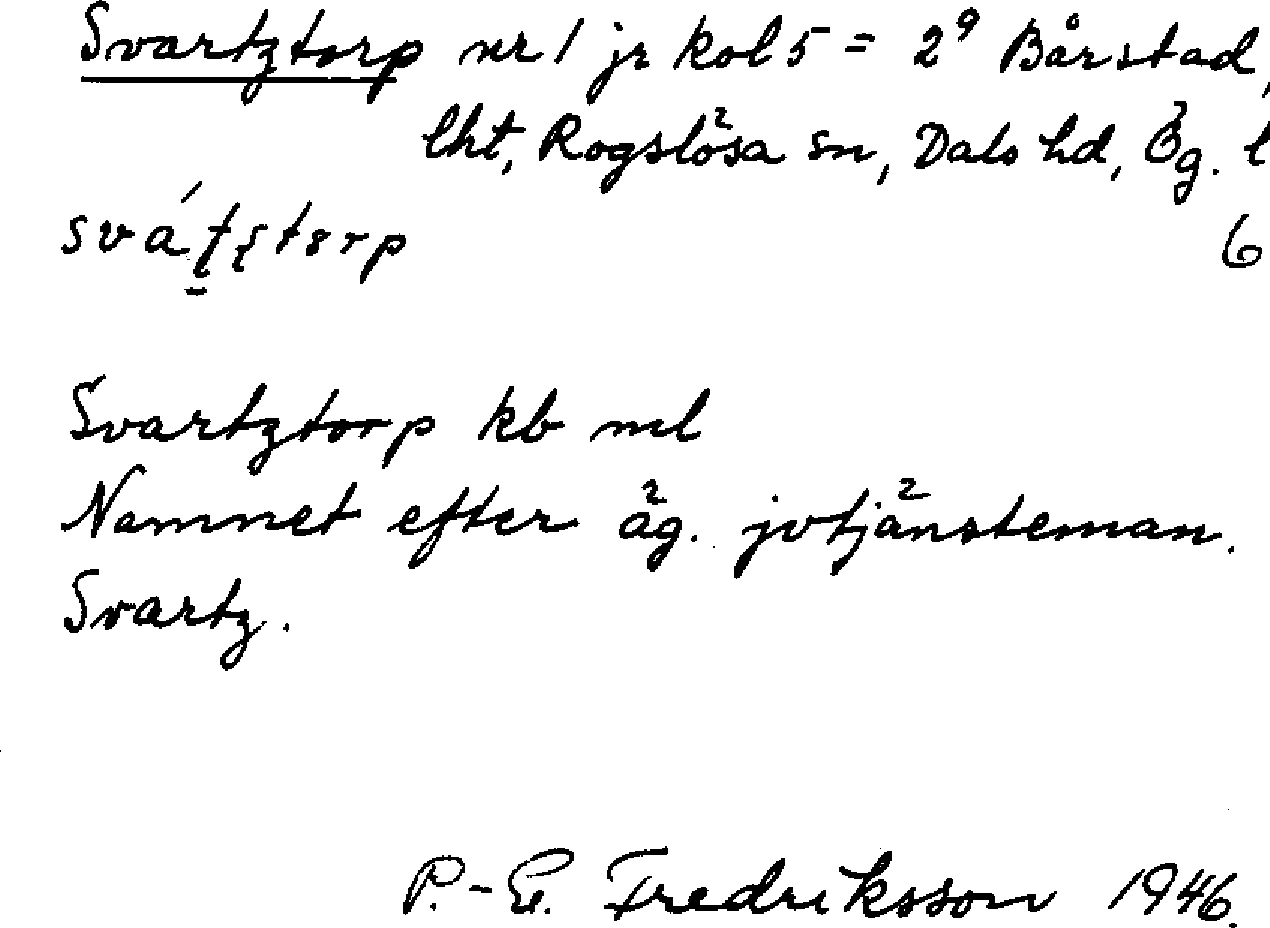 Svartztorp nr 1 jr kol 5 = 2⁹ Bårstad,
lht, Rogslösa sn, Dals hd, Ög. l
6
Svartztorp kb ml
Namnet efter äg. jvtjänsteman.
Svartz.
P.-E. Fredriksson 1946.